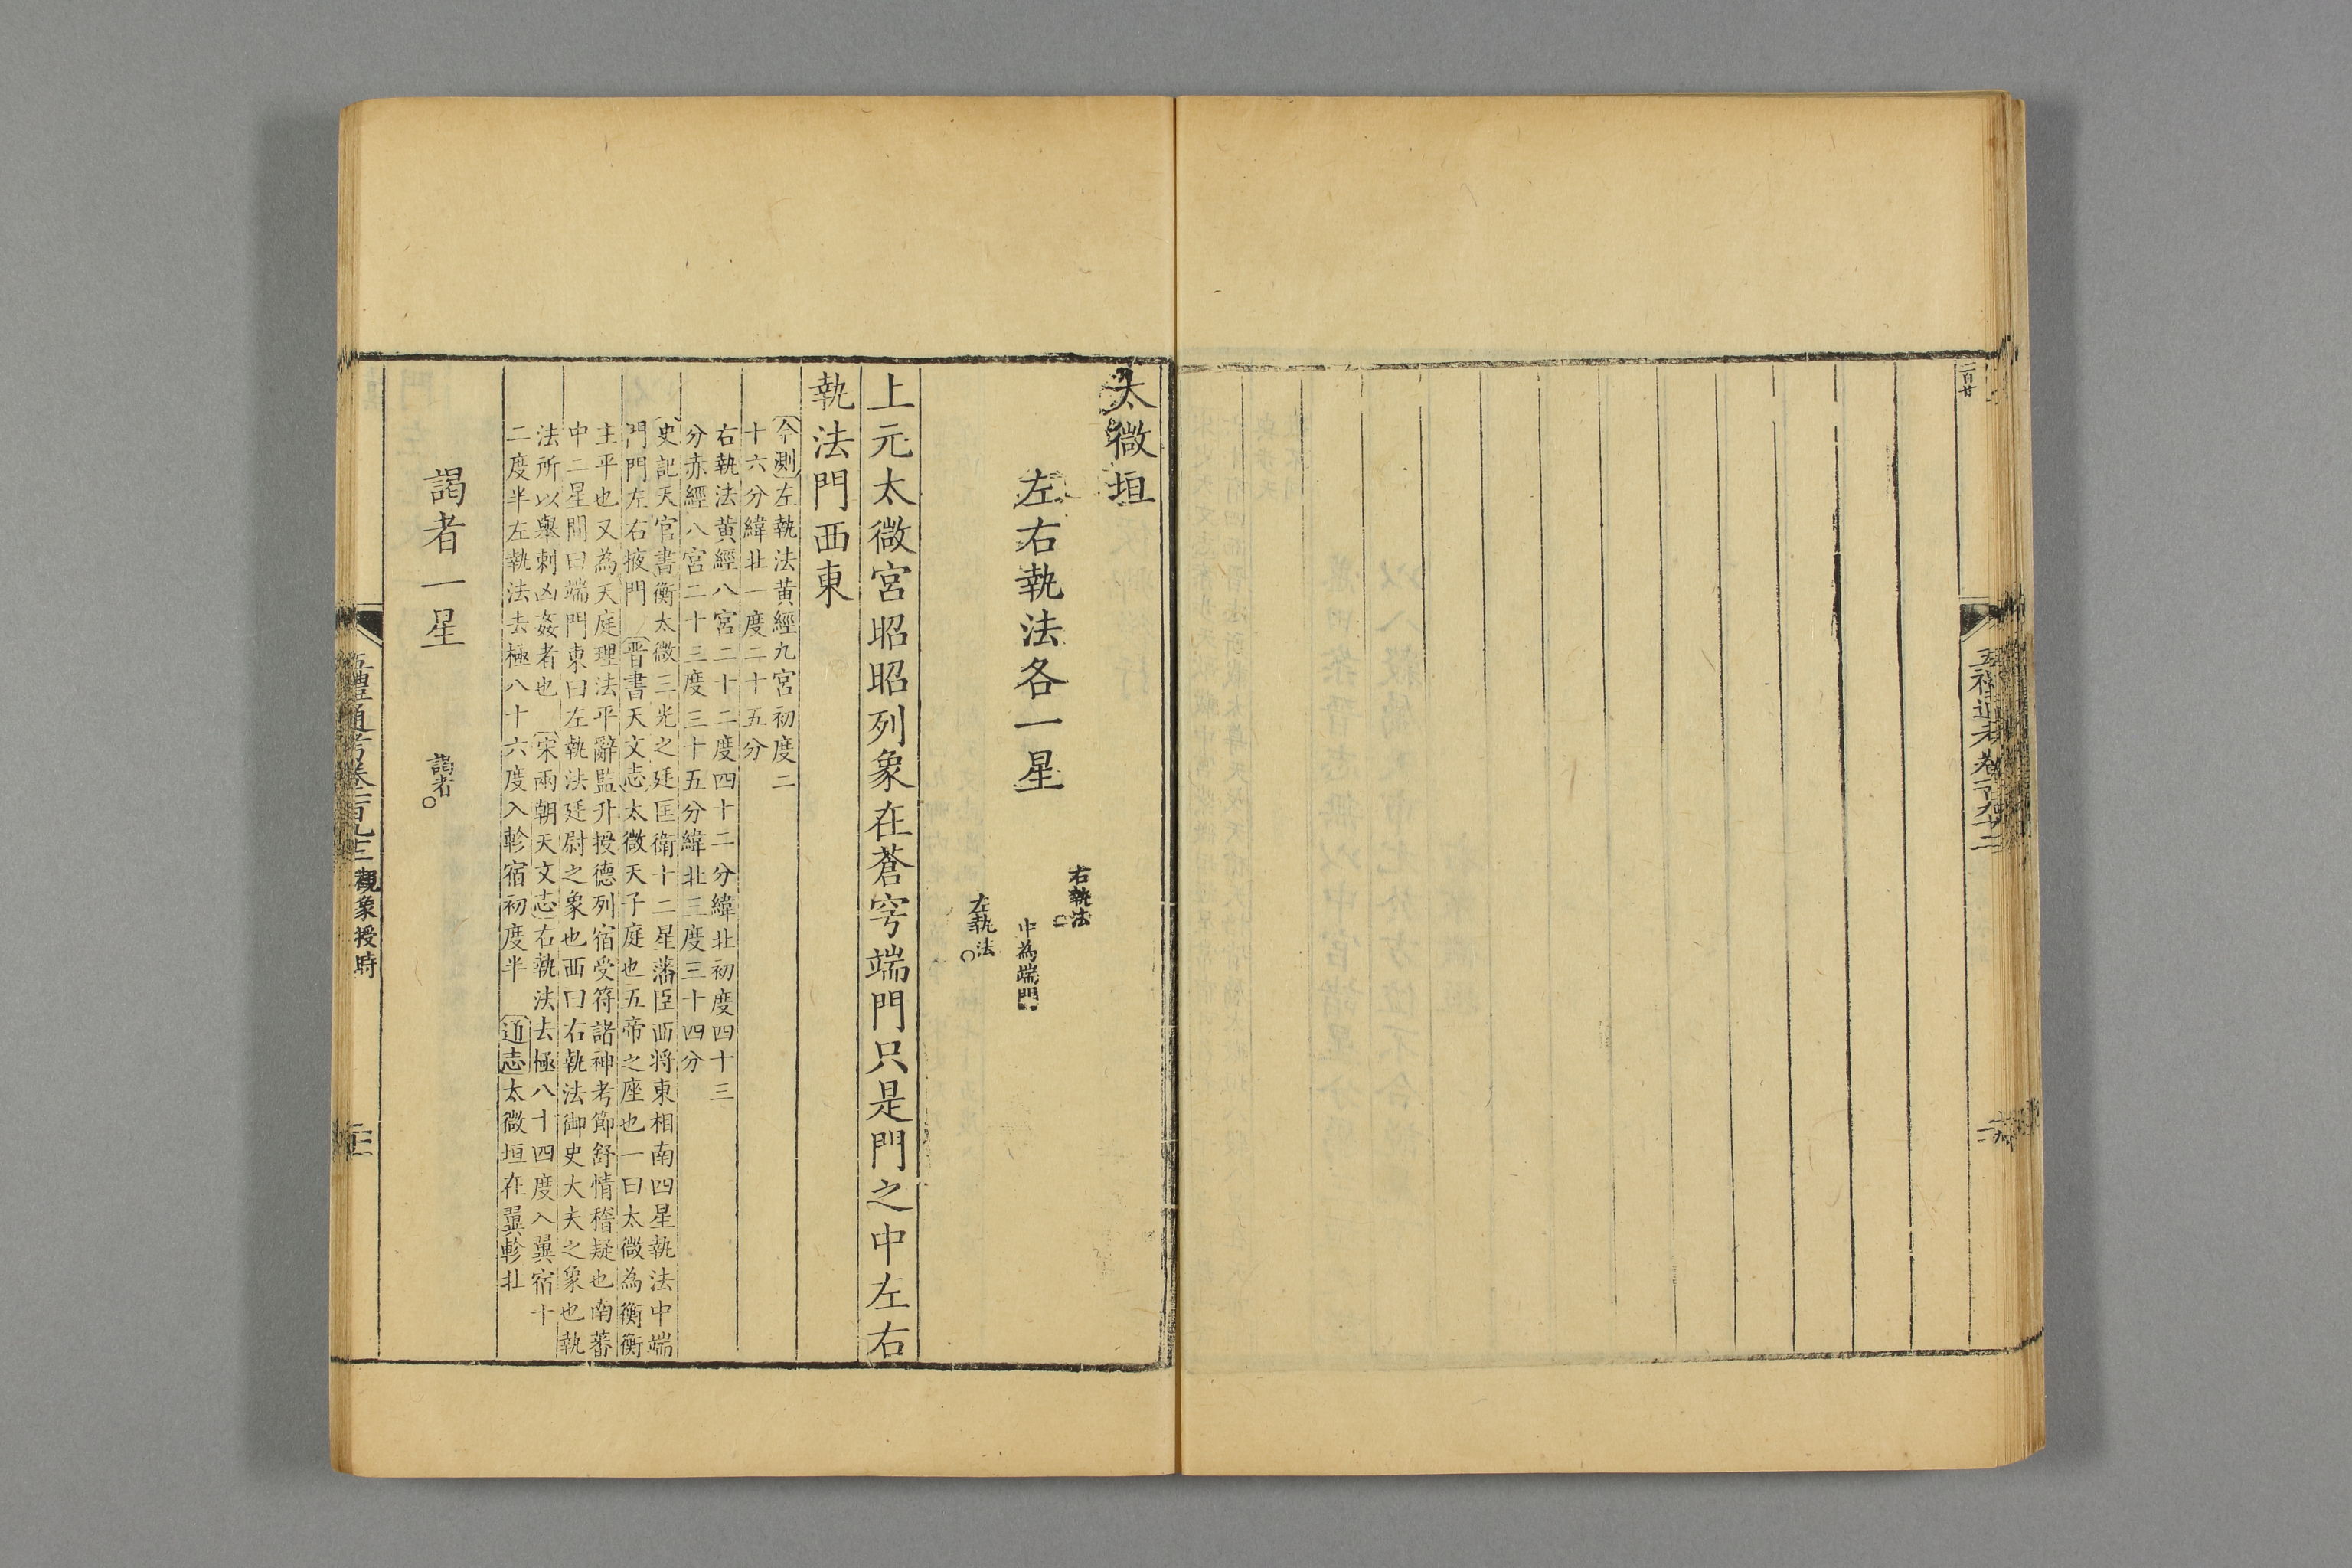 五禮通考卷一百九十二
太微垣
左右執法各一星
右執法
中為端門
左執法
上元太微宮昭昭列象在蒼穹端門只是門之中左右
執法門西東
今測左執法黃經九宮初度二
十六分緯北一度二十五分
右執法黃經八宮二十二度四十二分緯北初度四十三
分赤經八宮二十三度三十五分緯北三度三十四分
史記天官書衡太微三光之廷匡衛十二星藩臣西將東相南四星執法中端
門門左右掖門 晉書天文志太微天子庭也五帝之座也一曰太微為衡衡
主平也又為天庭理法平辭監升授德列宿受符諸神考節舒情稽疑也南蕃
中二星間曰端門東曰左執法廷尉之象也西曰右執法御史大夫之象也執
法所以舉刺凶姦者也 宋兩朝天文志右執法去極八十四度入翼宿十
二度半左執法去極八十六度入軫宿初度半 通志太微垣在翼軫北
謁者一星
謁者
五禮通考卷一百九十三 觀象授時